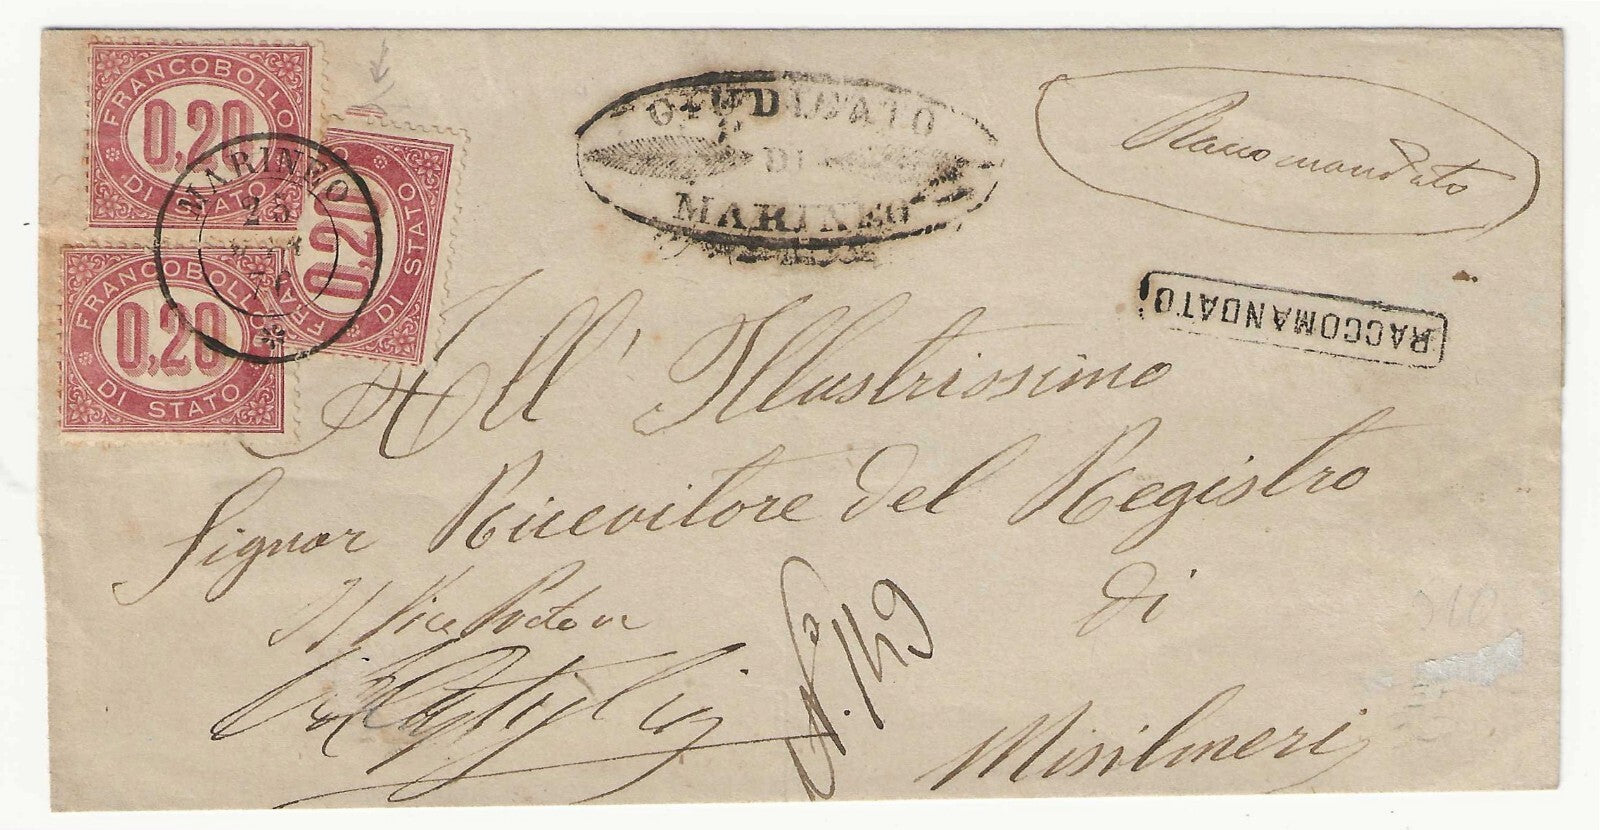 FRANCOBOLLO
0,20
DI STATO
FRANCOBOLLO
0,20
DI STATO
FRA
0,20
DI STATO
MARINEO
25
GIUDICATO
DI
MARINEO
Raccomandato
RACCOMANDATO
All' Illustrissimo
Signor Ricevitore del Registro
di
Misilmeri
Il Vice Pretore
N. 149